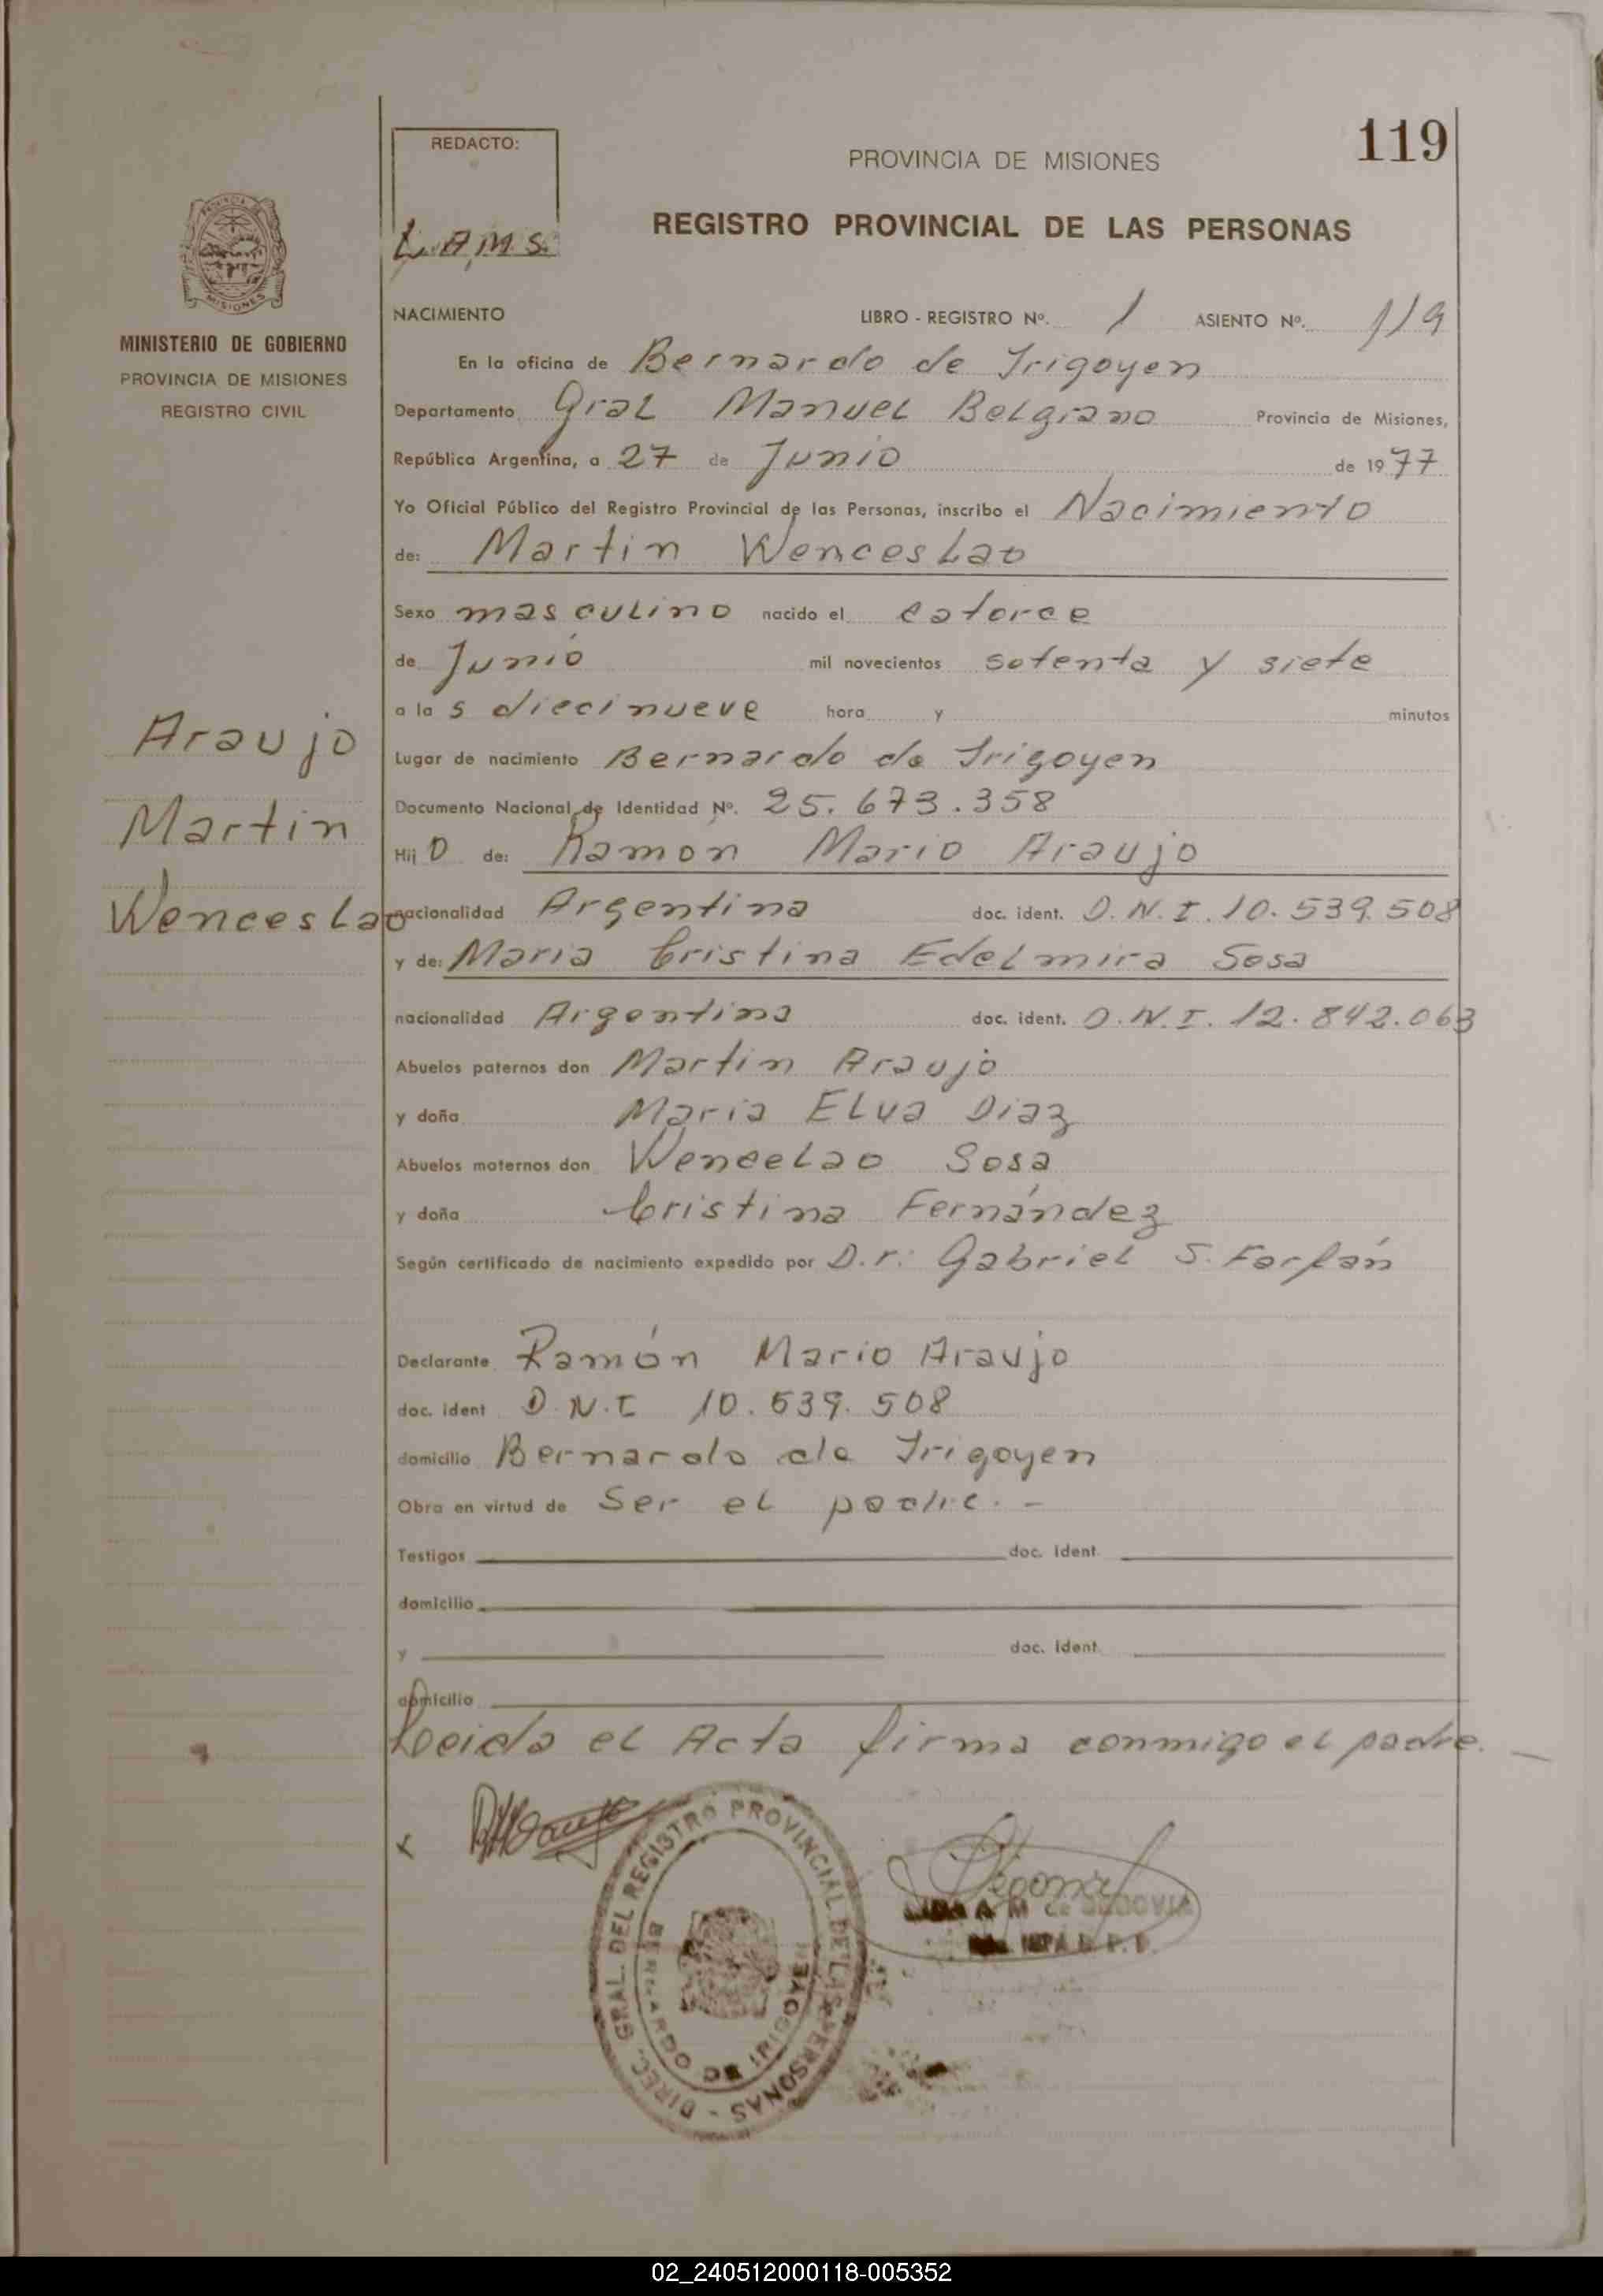 119
REDACTO:
L.A.M.S.
PROVINCIA DE MISIONES
REGISTRO PROVINCIAL DE LAS PERSONAS
PROVINCIA DE
MISIONES
MINISTERIO DE GOBIERNO
PROVINCIA DE MISIONES
REGISTRO CIVIL
Araujo
Martin
Wenceslao
NACIMIENTO LIBRO - REGISTRO Nº. 1 ASIENTO Nº. 119
En la oficina de Bernardo de Irigoyen
Departamento Gral Manuel Belgrano Provincia de Misiones,
República Argentina, a 27 de Junio de 1977
Yo Oficial Público del Registro Provincial de las Personas, inscribo el Nacimiento
de: Martin Wenceslao
Sexo masculino nacido el catorce
de Junio mil novecientos setenta y siete
a las diecinueve hora y minutos
Lugar de nacimiento Bernardo de Irigoyen
Documento Nacional de Identidad Nº. 25.673.358
Hijo de: Ramon Mario Araujo
nacionalidad Argentina doc. ident. D.N.I. 10.539.508
y de: Maria Cristina Edelmira Sosa
nacionalidad Argentina doc. ident. D.N.I. 12.842.063
Abuelos paternos don Martin Araujo
y doña Maria Elva Diaz
Abuelos maternos don Wencelao Sosa
y doña Cristina Fernández
Según certificado de nacimiento expedido por D.r: Gabriel S. Farfán
Declarante Ramón Mario Araujo
doc. ident D.N.I 10.539.508
domicilio Bernardo de Irigoyen
Obra en virtud de Ser el padre. -
Testigos doc. ident.
domicilio
y doc. ident.
domicilio
Leida el Acta firma conmigo el padre. -
x
DIREC. GRAL. DEL REGISTRO PROVINCIAL DE LAS PERSONAS -
BERNARDO DE IRIGOYEN
A M de SEGOVIA
02_240512000118-005352